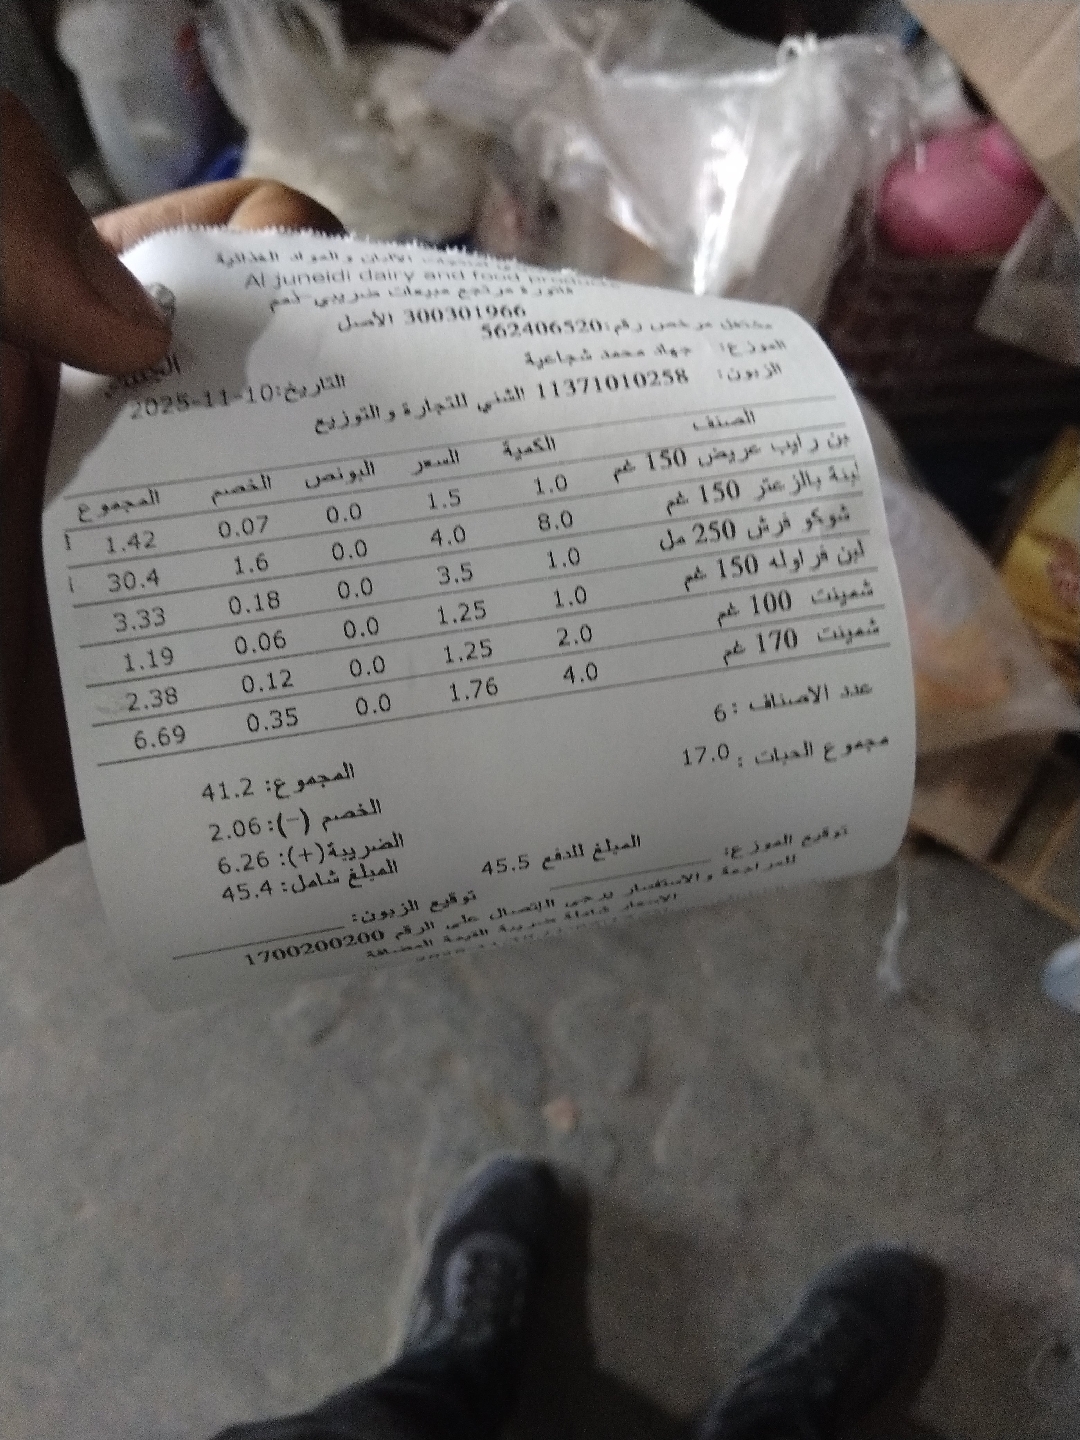 الألبان والمواد الغذائية
Al juneidi dairy and food products
فاتورة مرتجع مبيعات ضريبي-لحم
300301966 الأصل
مشتغل مرخص رقم:562406520
الموزع: جهاد محمد شجاعية
التاريخ:10-11-2025
الزبون: 11371010258 الشني للتجارة والتوزيع
الصنف الكمية السعر البونص الخصم المجموع
بن رايب عريض 150 غم 1.0 1.5 0.0 0.07 1.42
لبنة بالزعتر 150 غم 8.0 4.0 0.0 1.6 30.4
شوكو فرش 250 مل 1.0 3.5 0.0 0.18 3.33
لبن فراوله 150 غم 1.0 1.25 0.0 0.06 1.19
شمينت 100 غم 2.0 1.25 0.0 0.12 2.38
شمينت 170 غم 4.0 1.76 0.0 0.35 6.69
عدد الأصناف :6
مجموع الحبات : 17.0
المجموع: 41.2
الخصم (-):2.06
الضريبة(+): 6.26
المبلغ شامل: 45.4
المبلغ للدفع 45.5
توقيع الموزع:
توقيع الزبون:
للمراجعة والاستفسار يرجى الإتصال على الرقم 1700200200
الاسعار شاملة ضريبة القيمة المضافة